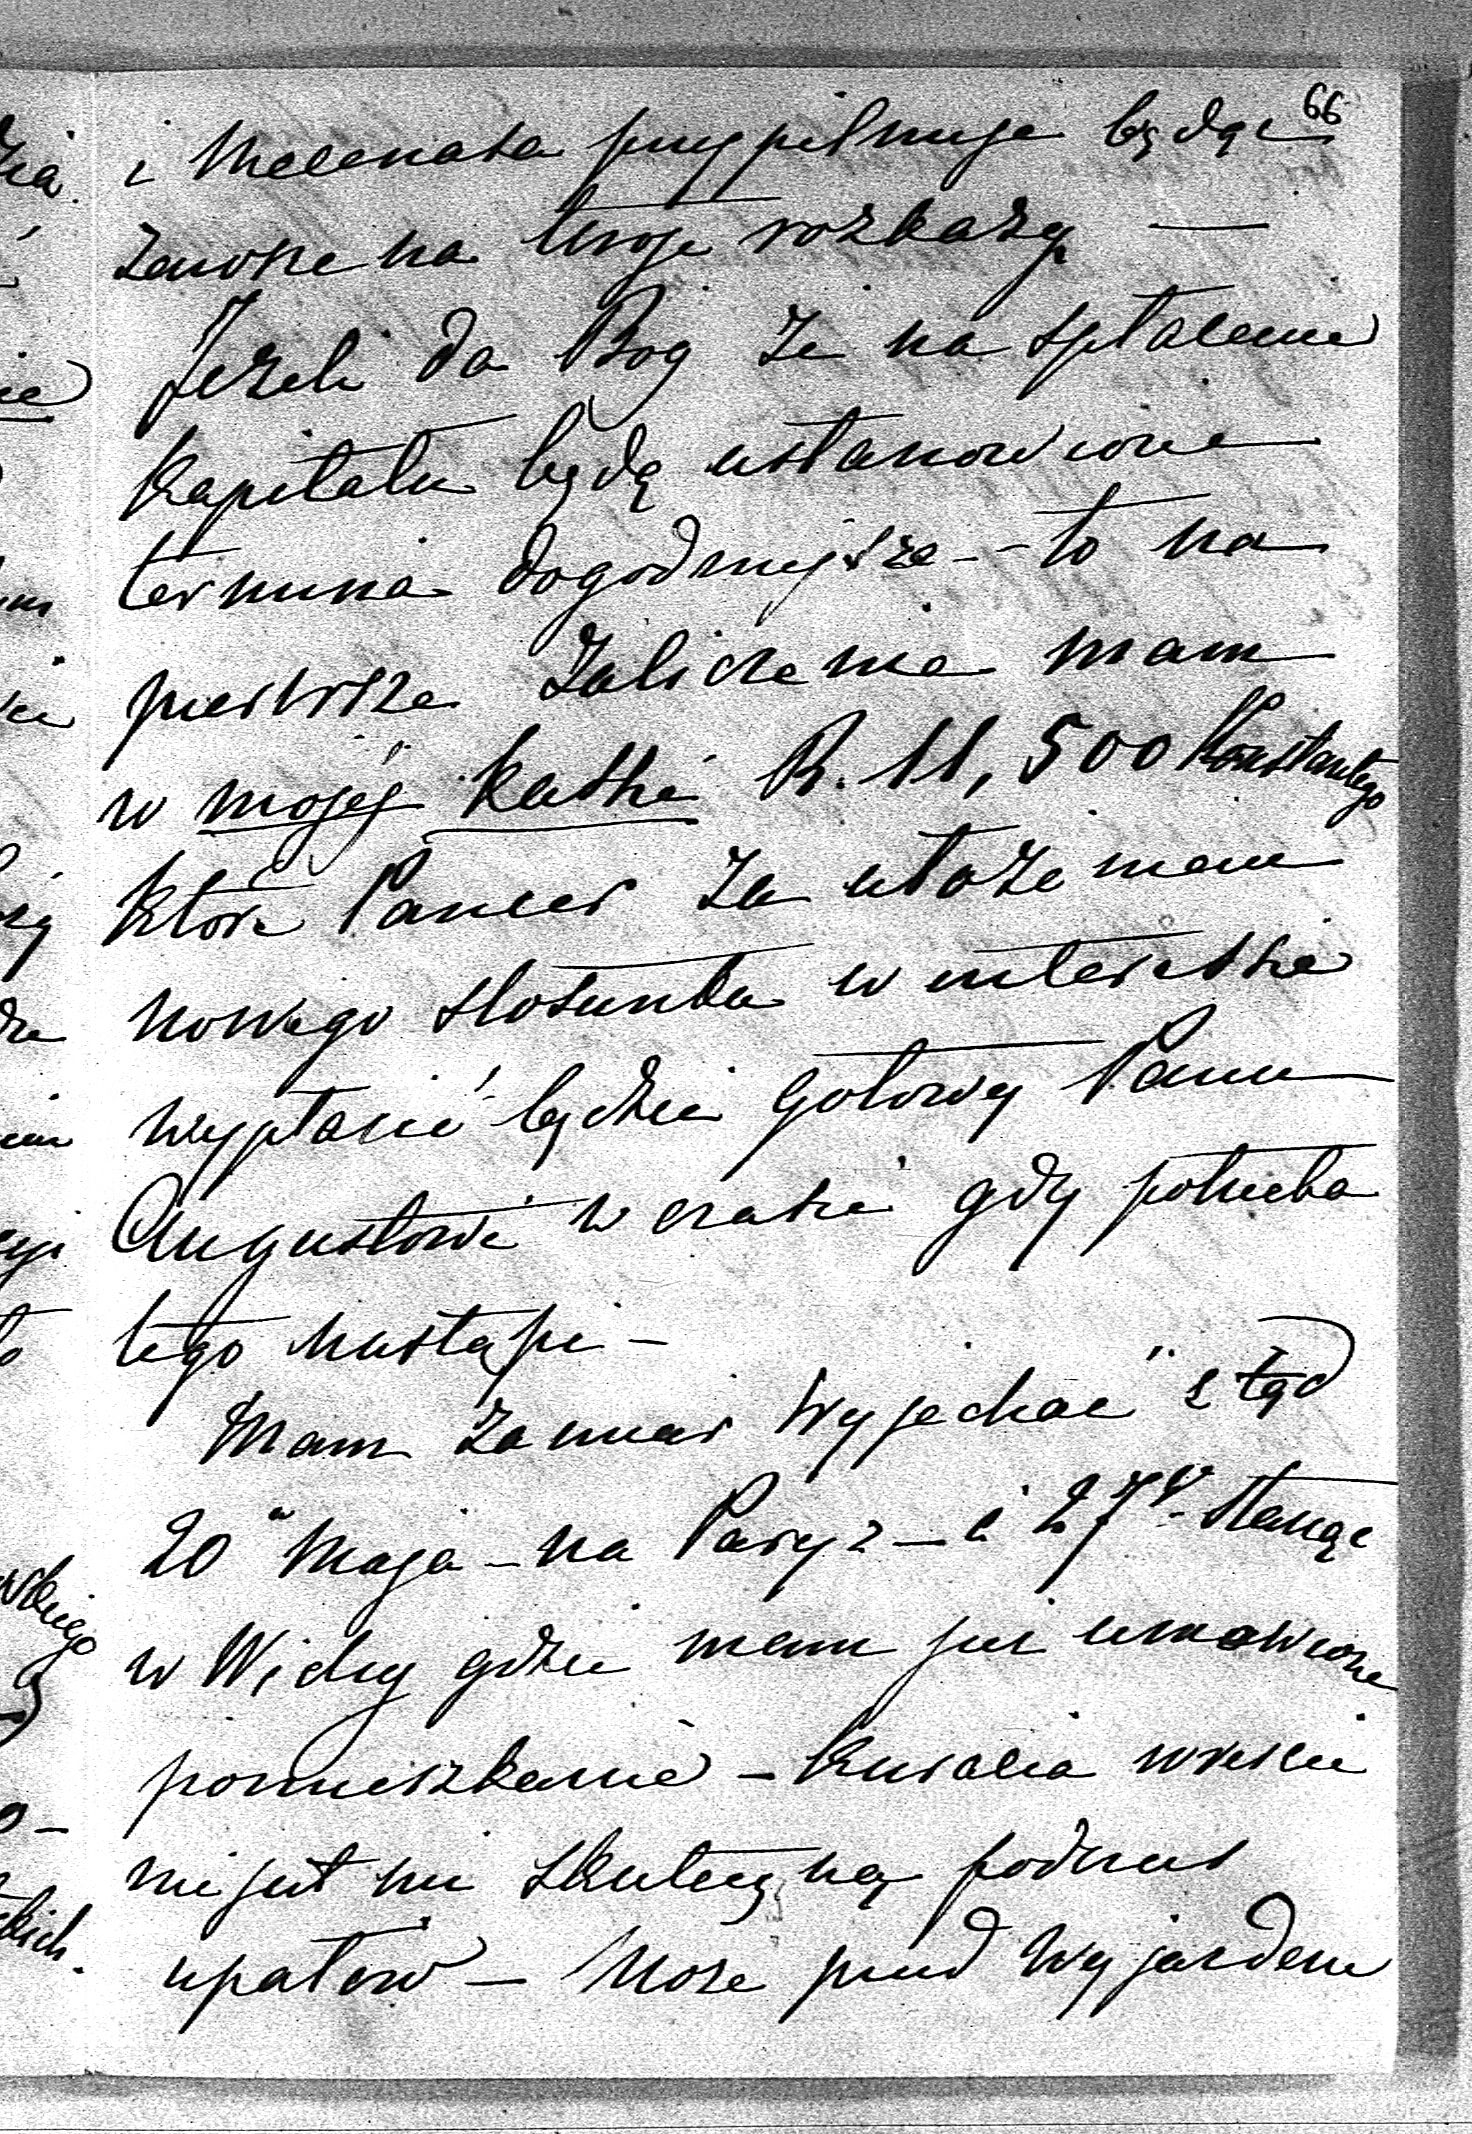 66
i Mecenasa przypilnuje będąc
zawsze na twoje rozkazy —
Jeżeli da Bog że na spłacenie
kapitału będą ustanowione
termina dogodniejsze – to na
pierwsze zaliczenie mam
w mojej kassie R. 11,500 Konstantego
które Pancer za ułożeniem
nowego stosunku w interessie
wypłacić będzie gotowy Panu
Augustowi w czasie gdy potrzeba
tego nastąpi –
Mam zamiar wyjechać ztąd
20 Maja – na Paryż – i 27 stanąć
w Vichy gdzie mam już umówione
pomieszkanie – Kuracia wreście
nie jest mi skuteczną podczas
upałów – Może przed wyjazdem